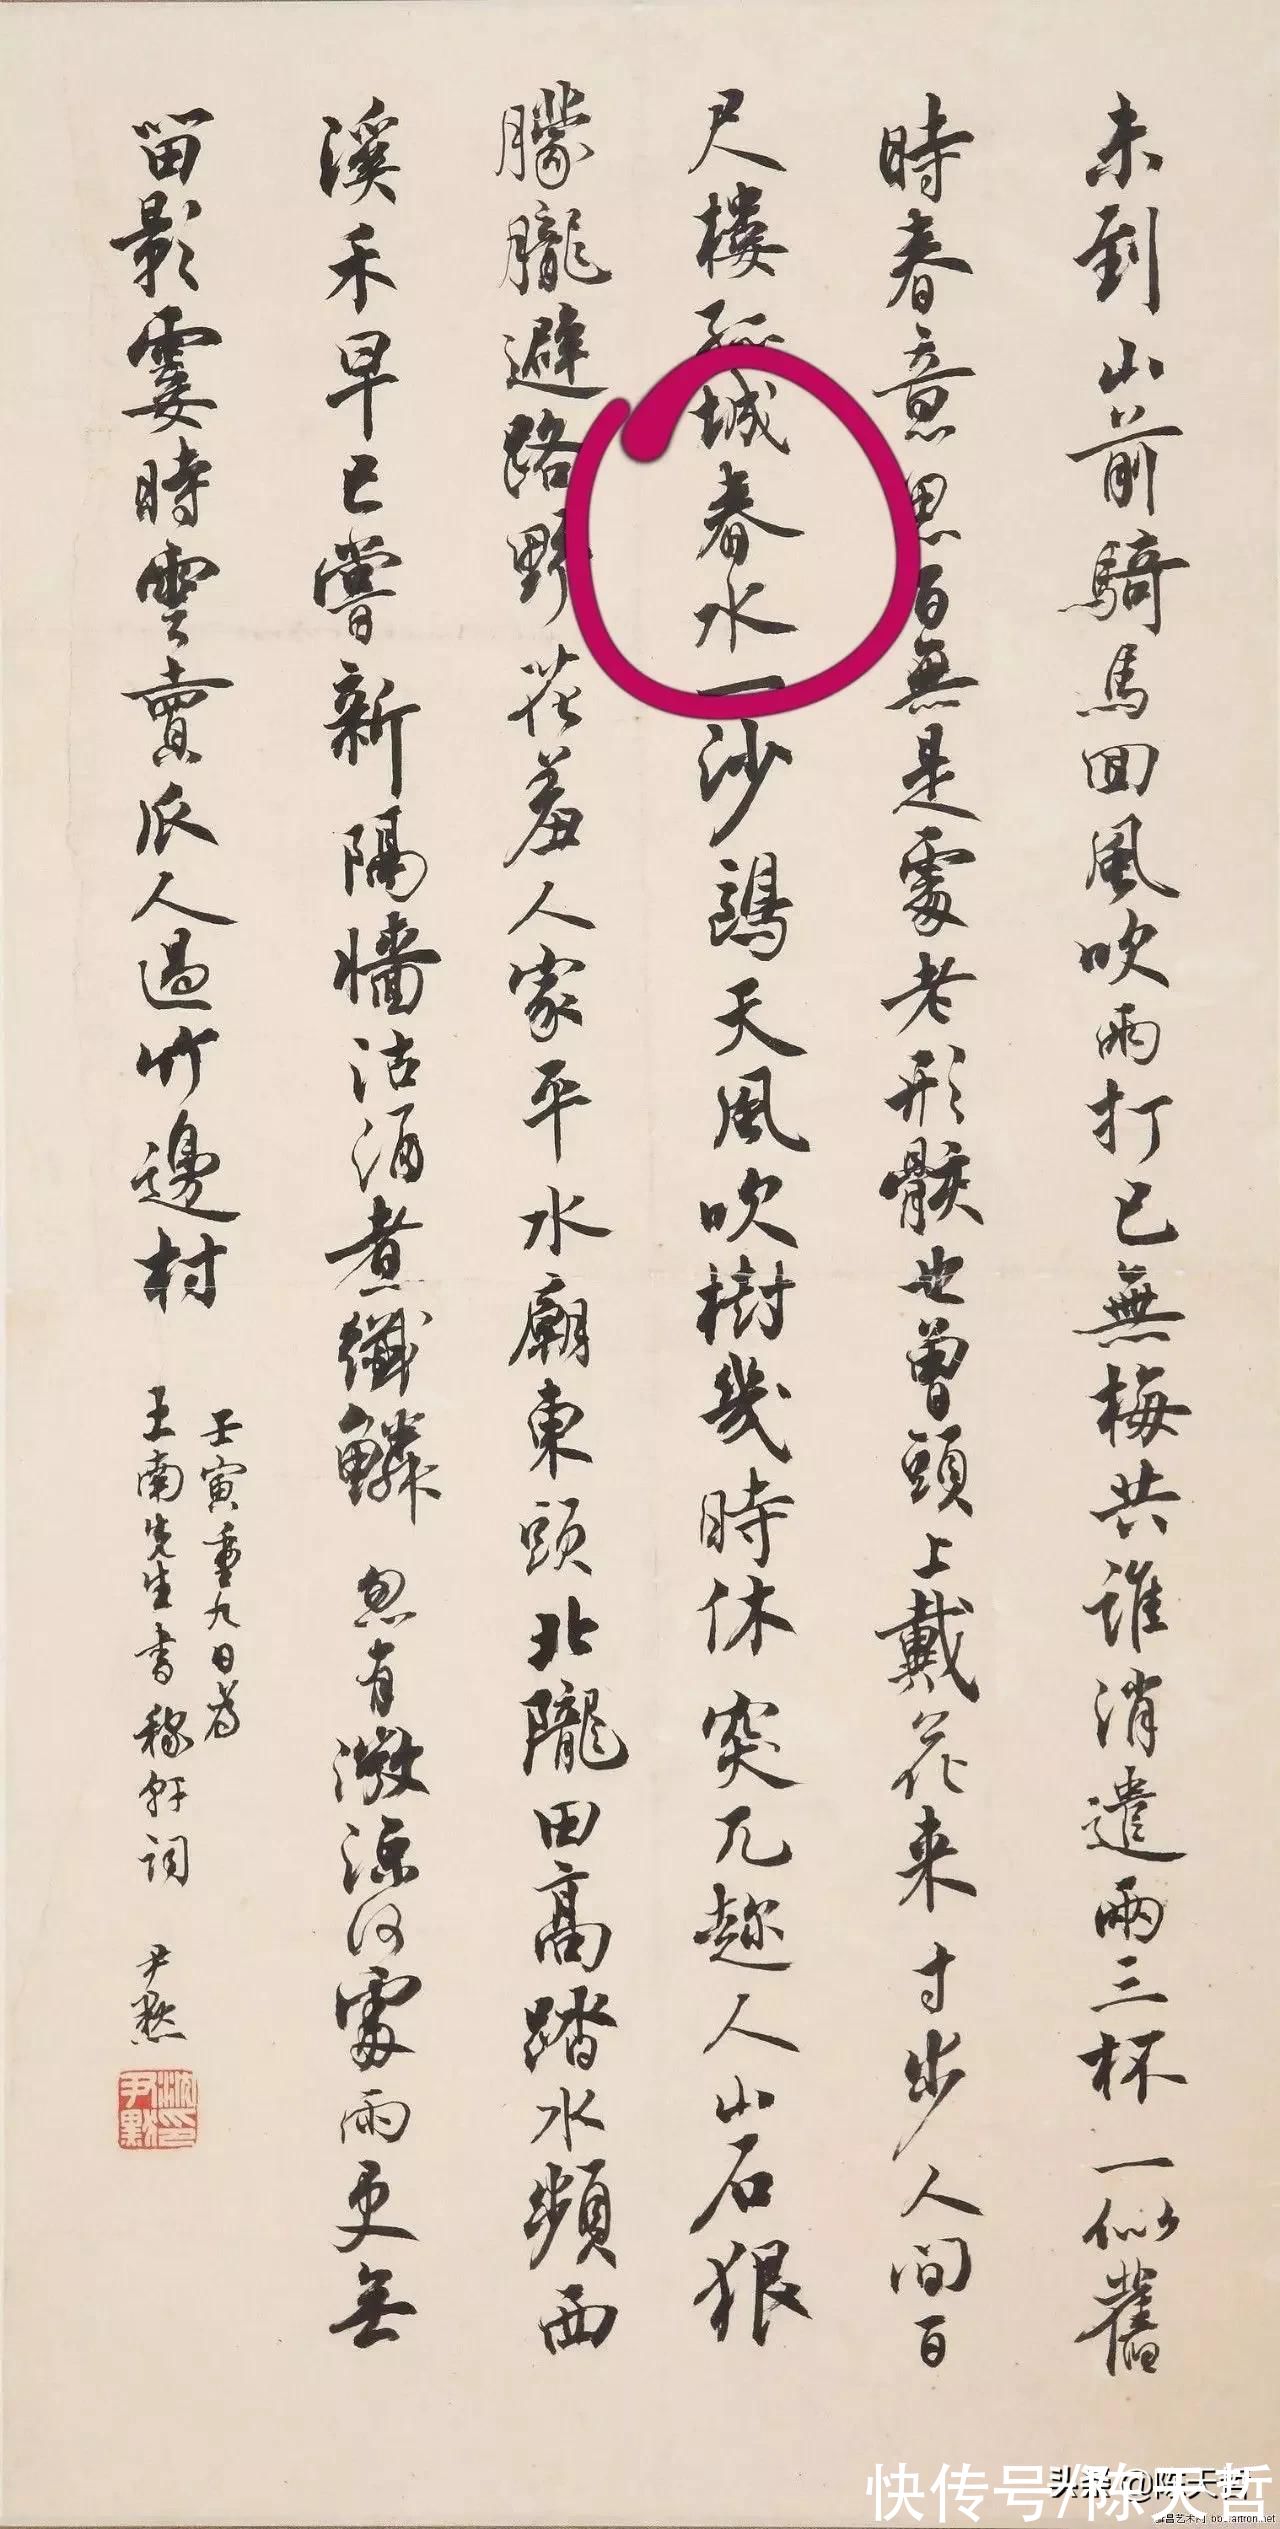 未到山前騎馬回風吹雨打已無梅共誰消遣兩三杯一似舊
時春意思百無是處老形骸也曾頭上戴花来寸步人間百
尺樓孤城春水一沙鷗天風吹樹幾時休突兀趂人山石狠
朦朧避路野花羞人家平水廟東頭北隴田高踏水頻西
溪禾早已嘗新隔牆沽酒煮纖鱗忽有微涼何處雨更無
留影霎時雲賣瓜人過竹邊村
壬寅重九日為
王南先生書稼軒詞 尹默
沈尹默印
快传号/陈天哲
头条@陈天哲